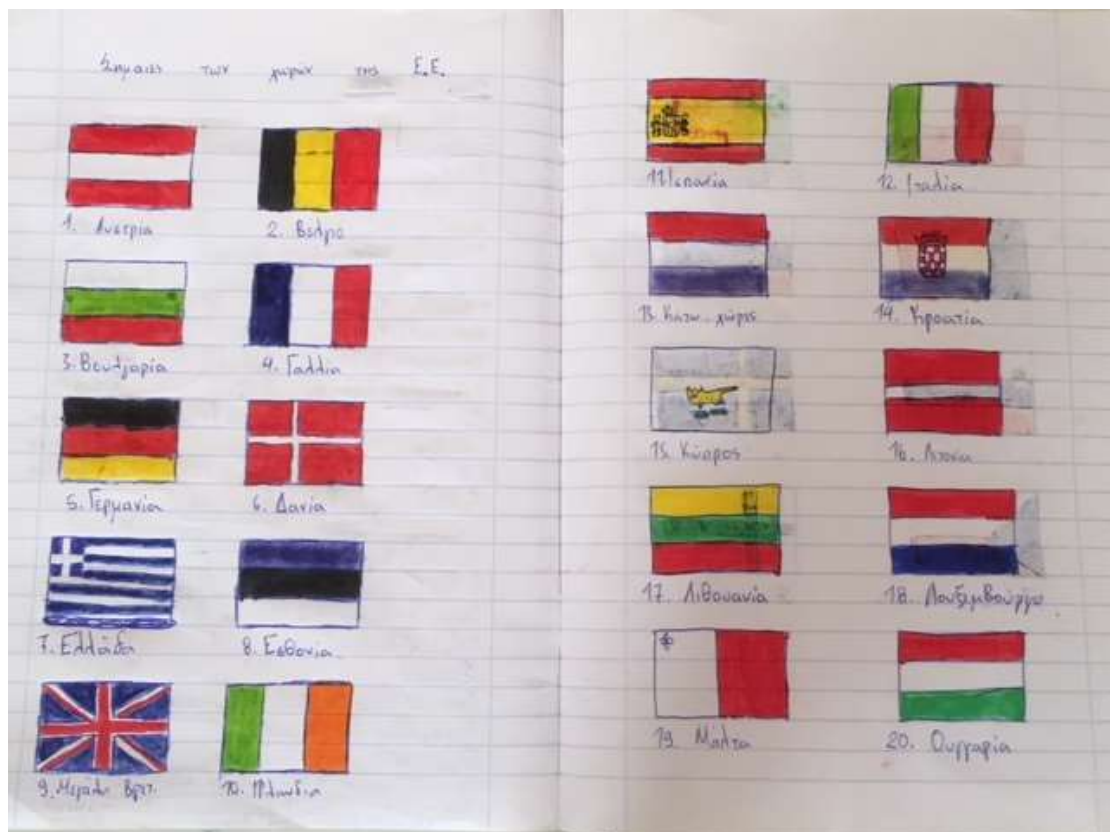 Σημαιες των χωρών της Ε.Ε.
1. Αυστρία
2. Βέλγιο
3. Βουλγαρία
4. Γαλλία
5. Γερμανία
6. Δανία
7. Ελλάδα
8. Εσθονια
9. Μεγάλη Βρετ.
10. Ιρλανδία
11. Ισπανία
12. Ιταλία
13. Κατω χώρες
14. Κροατία
15. Κύπρος
16. Λετονία
17. Λιθουανία
18. Λουξεμβούργο
19. Μάλτα
20. Ουγγαρία